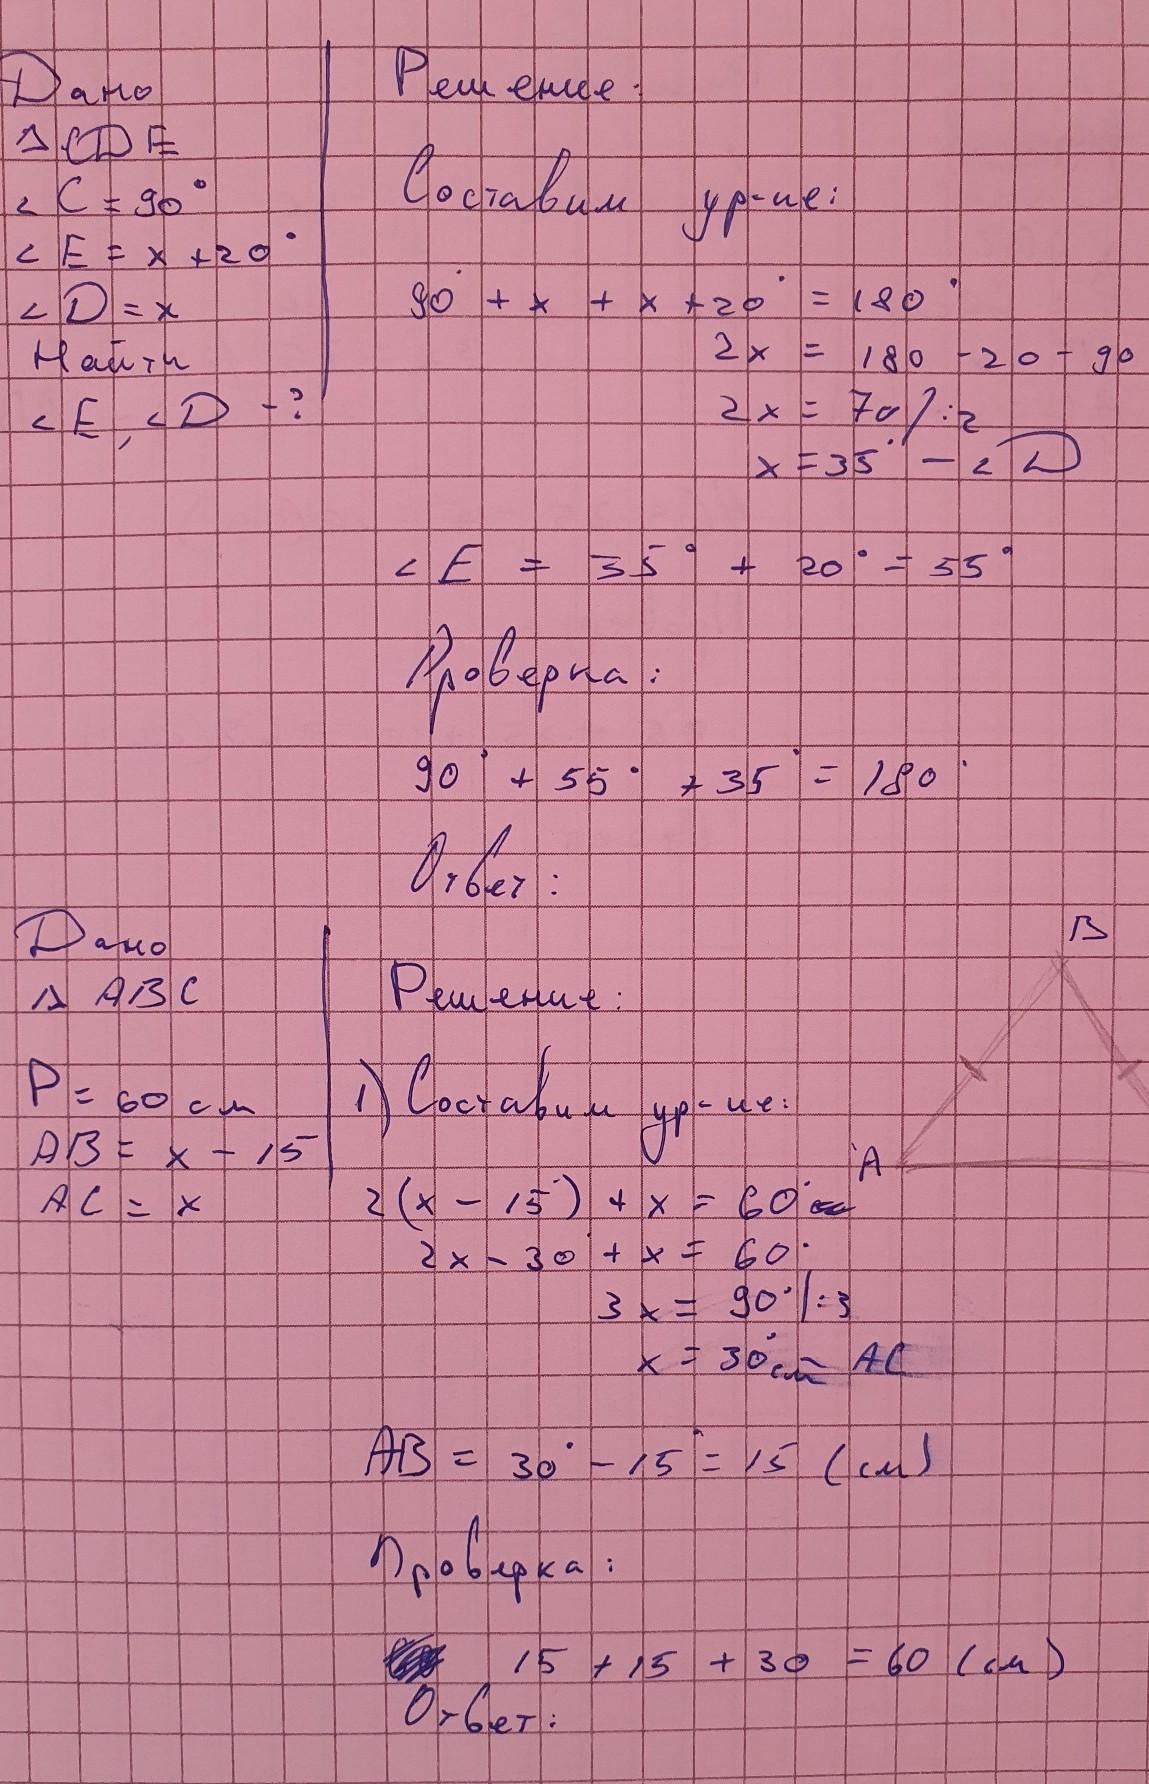 Дано
△ CDE
< C = 90°
< E = x + 20°
< D = x
Найти
< E, < D - ?
Решение:
Составим ур-ие:
90° + x + x + 20° = 180°
2x = 180 - 20 - 90
2x = 70 /:2
x = 35° - < D
< E = 35° + 20° = 55°
Проверка:
90° + 55° + 35° = 180°
Ответ:
Дано
△ ABC
P = 60 см
AB = x - 15
AC = x
Решение:
1) Составим ур-ие:
2(x - 15°) + x = 60°
2x - 30° + x = 60°
3x = 90° /:3
x = 30° см - AC
AB = 30° - 15° = 15 (см)
Проверка:
15 + 15 + 30 = 60 (см)
Ответ:
B
A